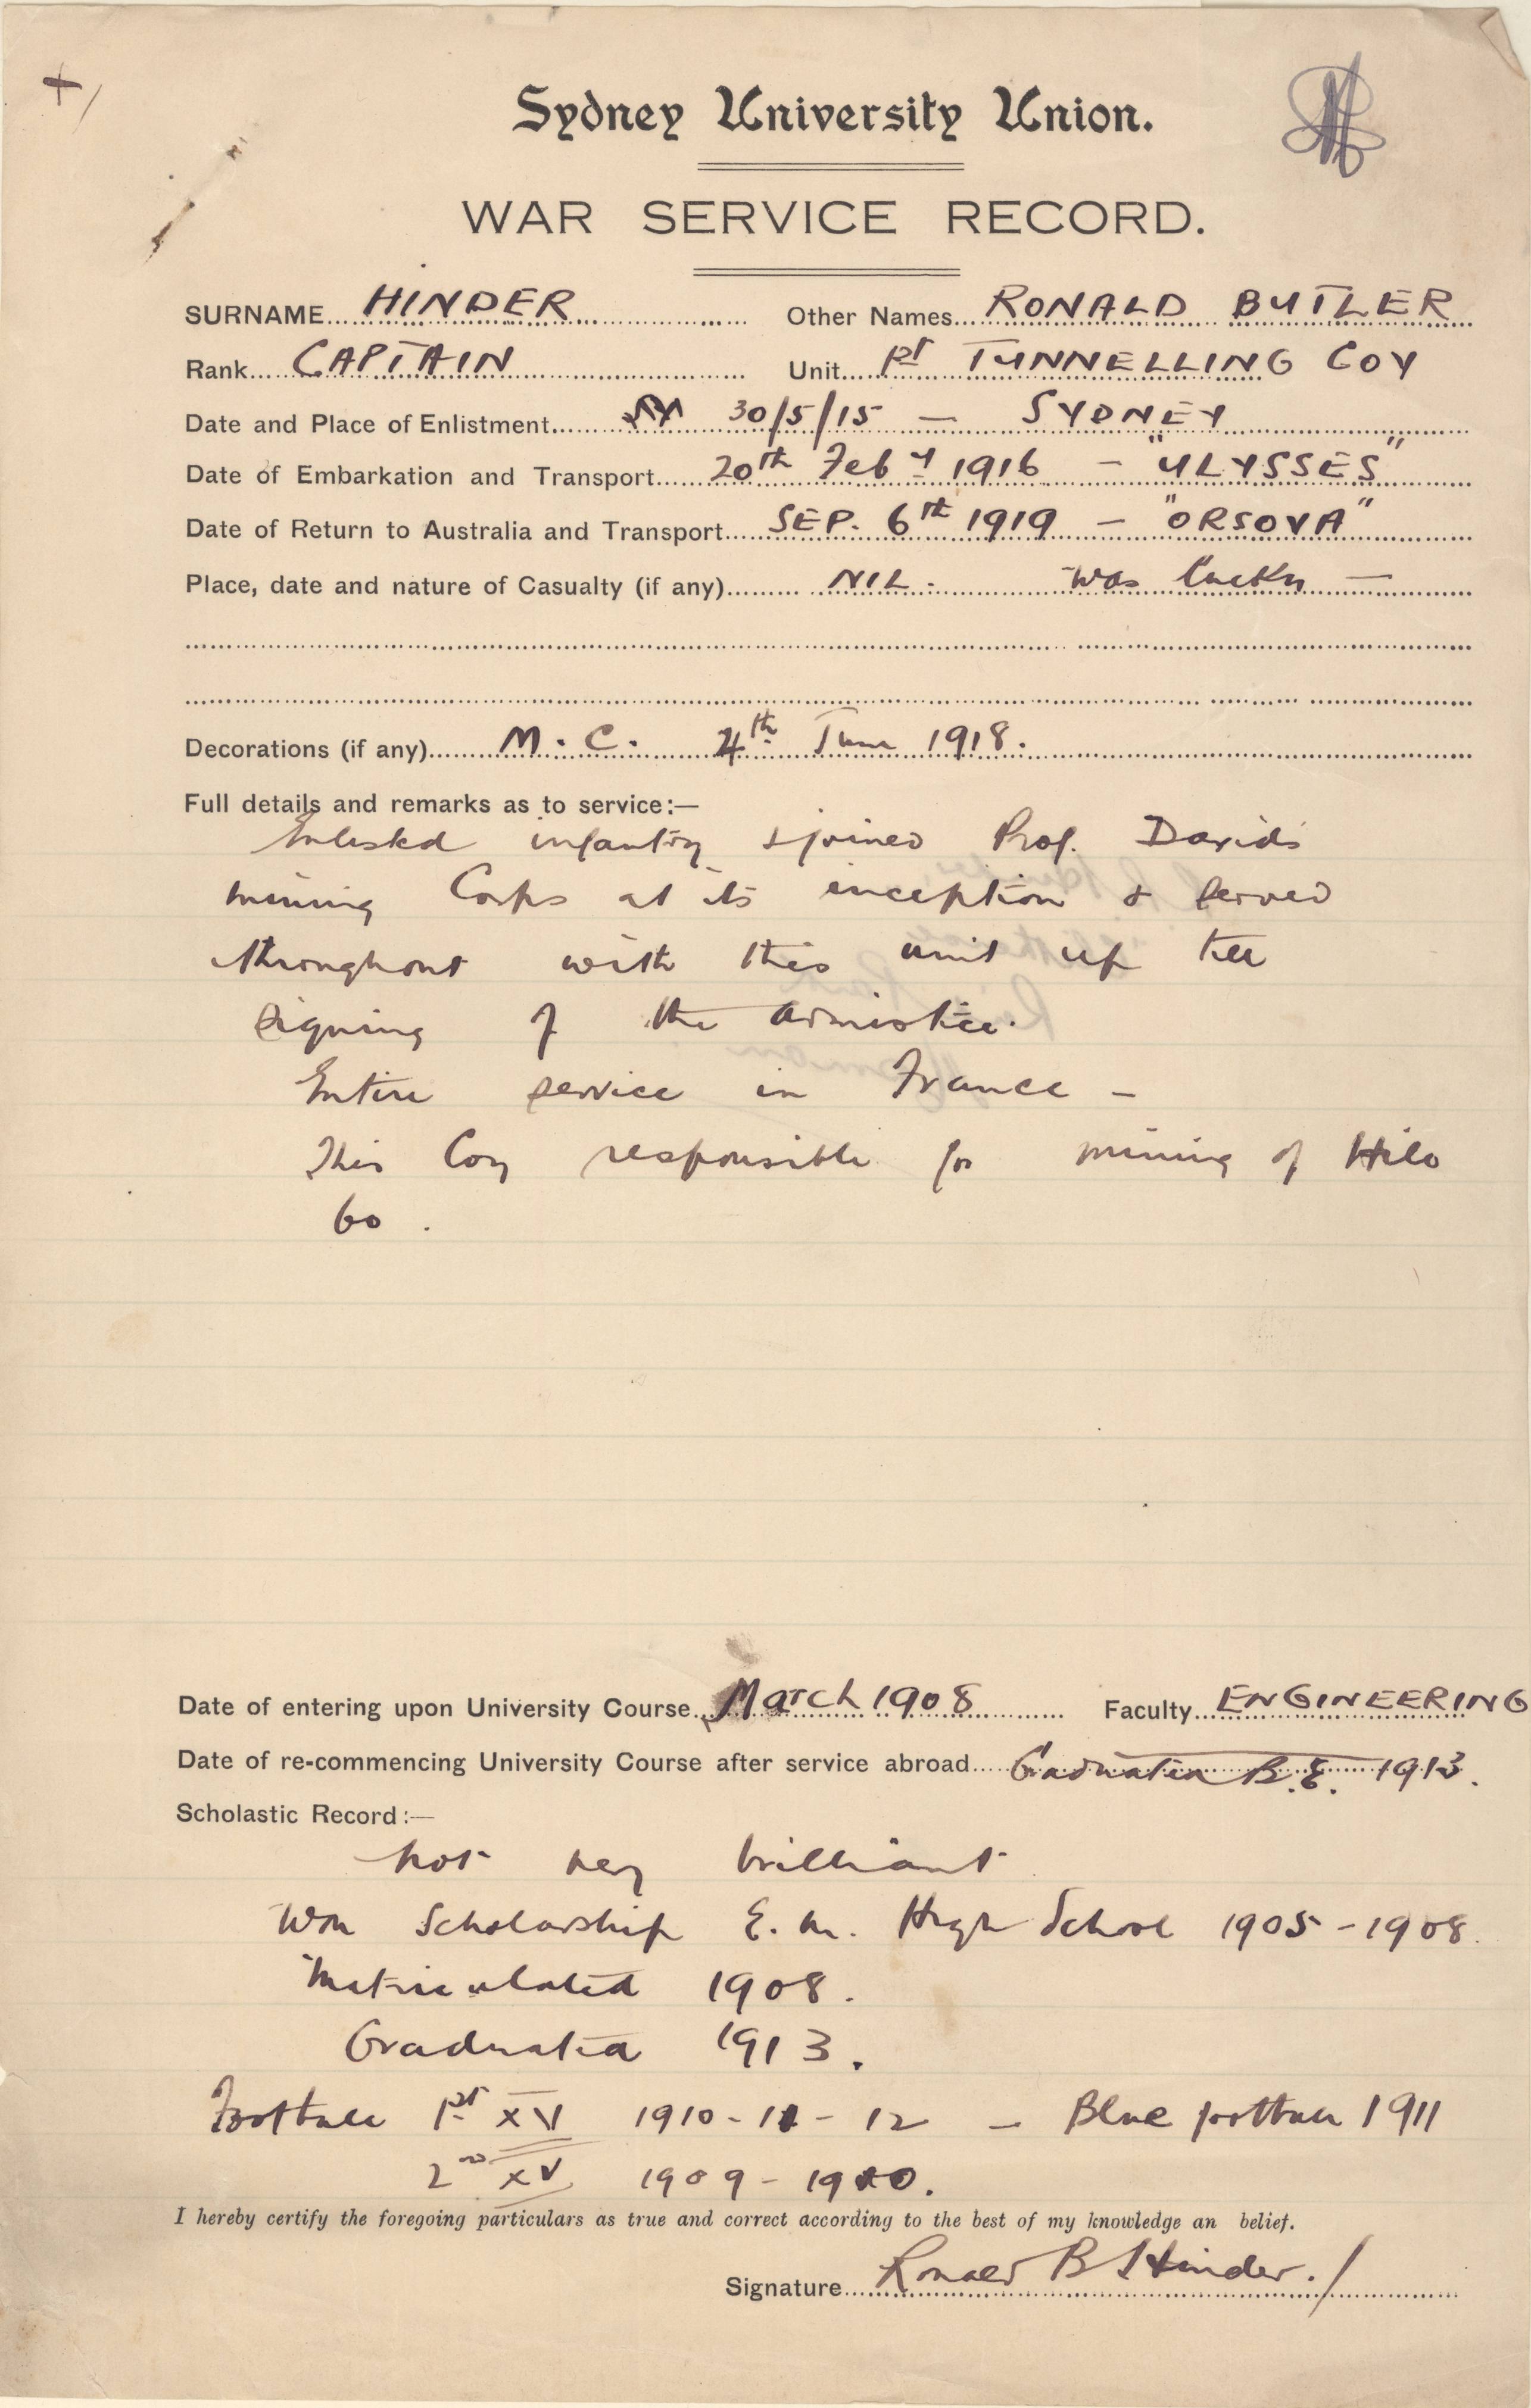 Sydney University Union.
WAR SERVICE RECORD.
SURNAME... HINDER Other Names... RONALD BUTLER
Rank... CAPTAIN Unit... 1st TUNNELLING COY
Date and Place of Enlistment... 30/5/15 — SYDNEY
Date of Embarkation and Transport... 20th Feby 1916 — "ULYSSES"
Date of Return to Australia and Transport... SEP. 6th 1919 — "ORSOVA"
Place, date and nature of Casualty (if any)... NIL. was lucky —
Decorations (if any)... M.C. 4th June 1918.
Full details and remarks as to service:—
Enlisted infantry & joined Prof. Davids
mining Corps at its inception & served
throughout with this unit up till
signing of the armistice.
Entire service in France —
This Coy responsible for mining of Hill
60.
Date of entering upon University Course... March 1908 Faculty... ENGINEERING
Date of re-commencing University Course after service abroad... Graduated B.E. 1913.
Scholastic Record:—
not very brilliant
Won Scholarship E. M. High School 1905-1908.
Matriculated 1908.
Graduated 1913.
Football 1st XV 1910-11-12 — Blue football 1911
2nd XV 1909-1910.
I hereby certify the foregoing particulars as true and correct according to the best of my knowledge an belief.
Signature... Ronald B Hinder.